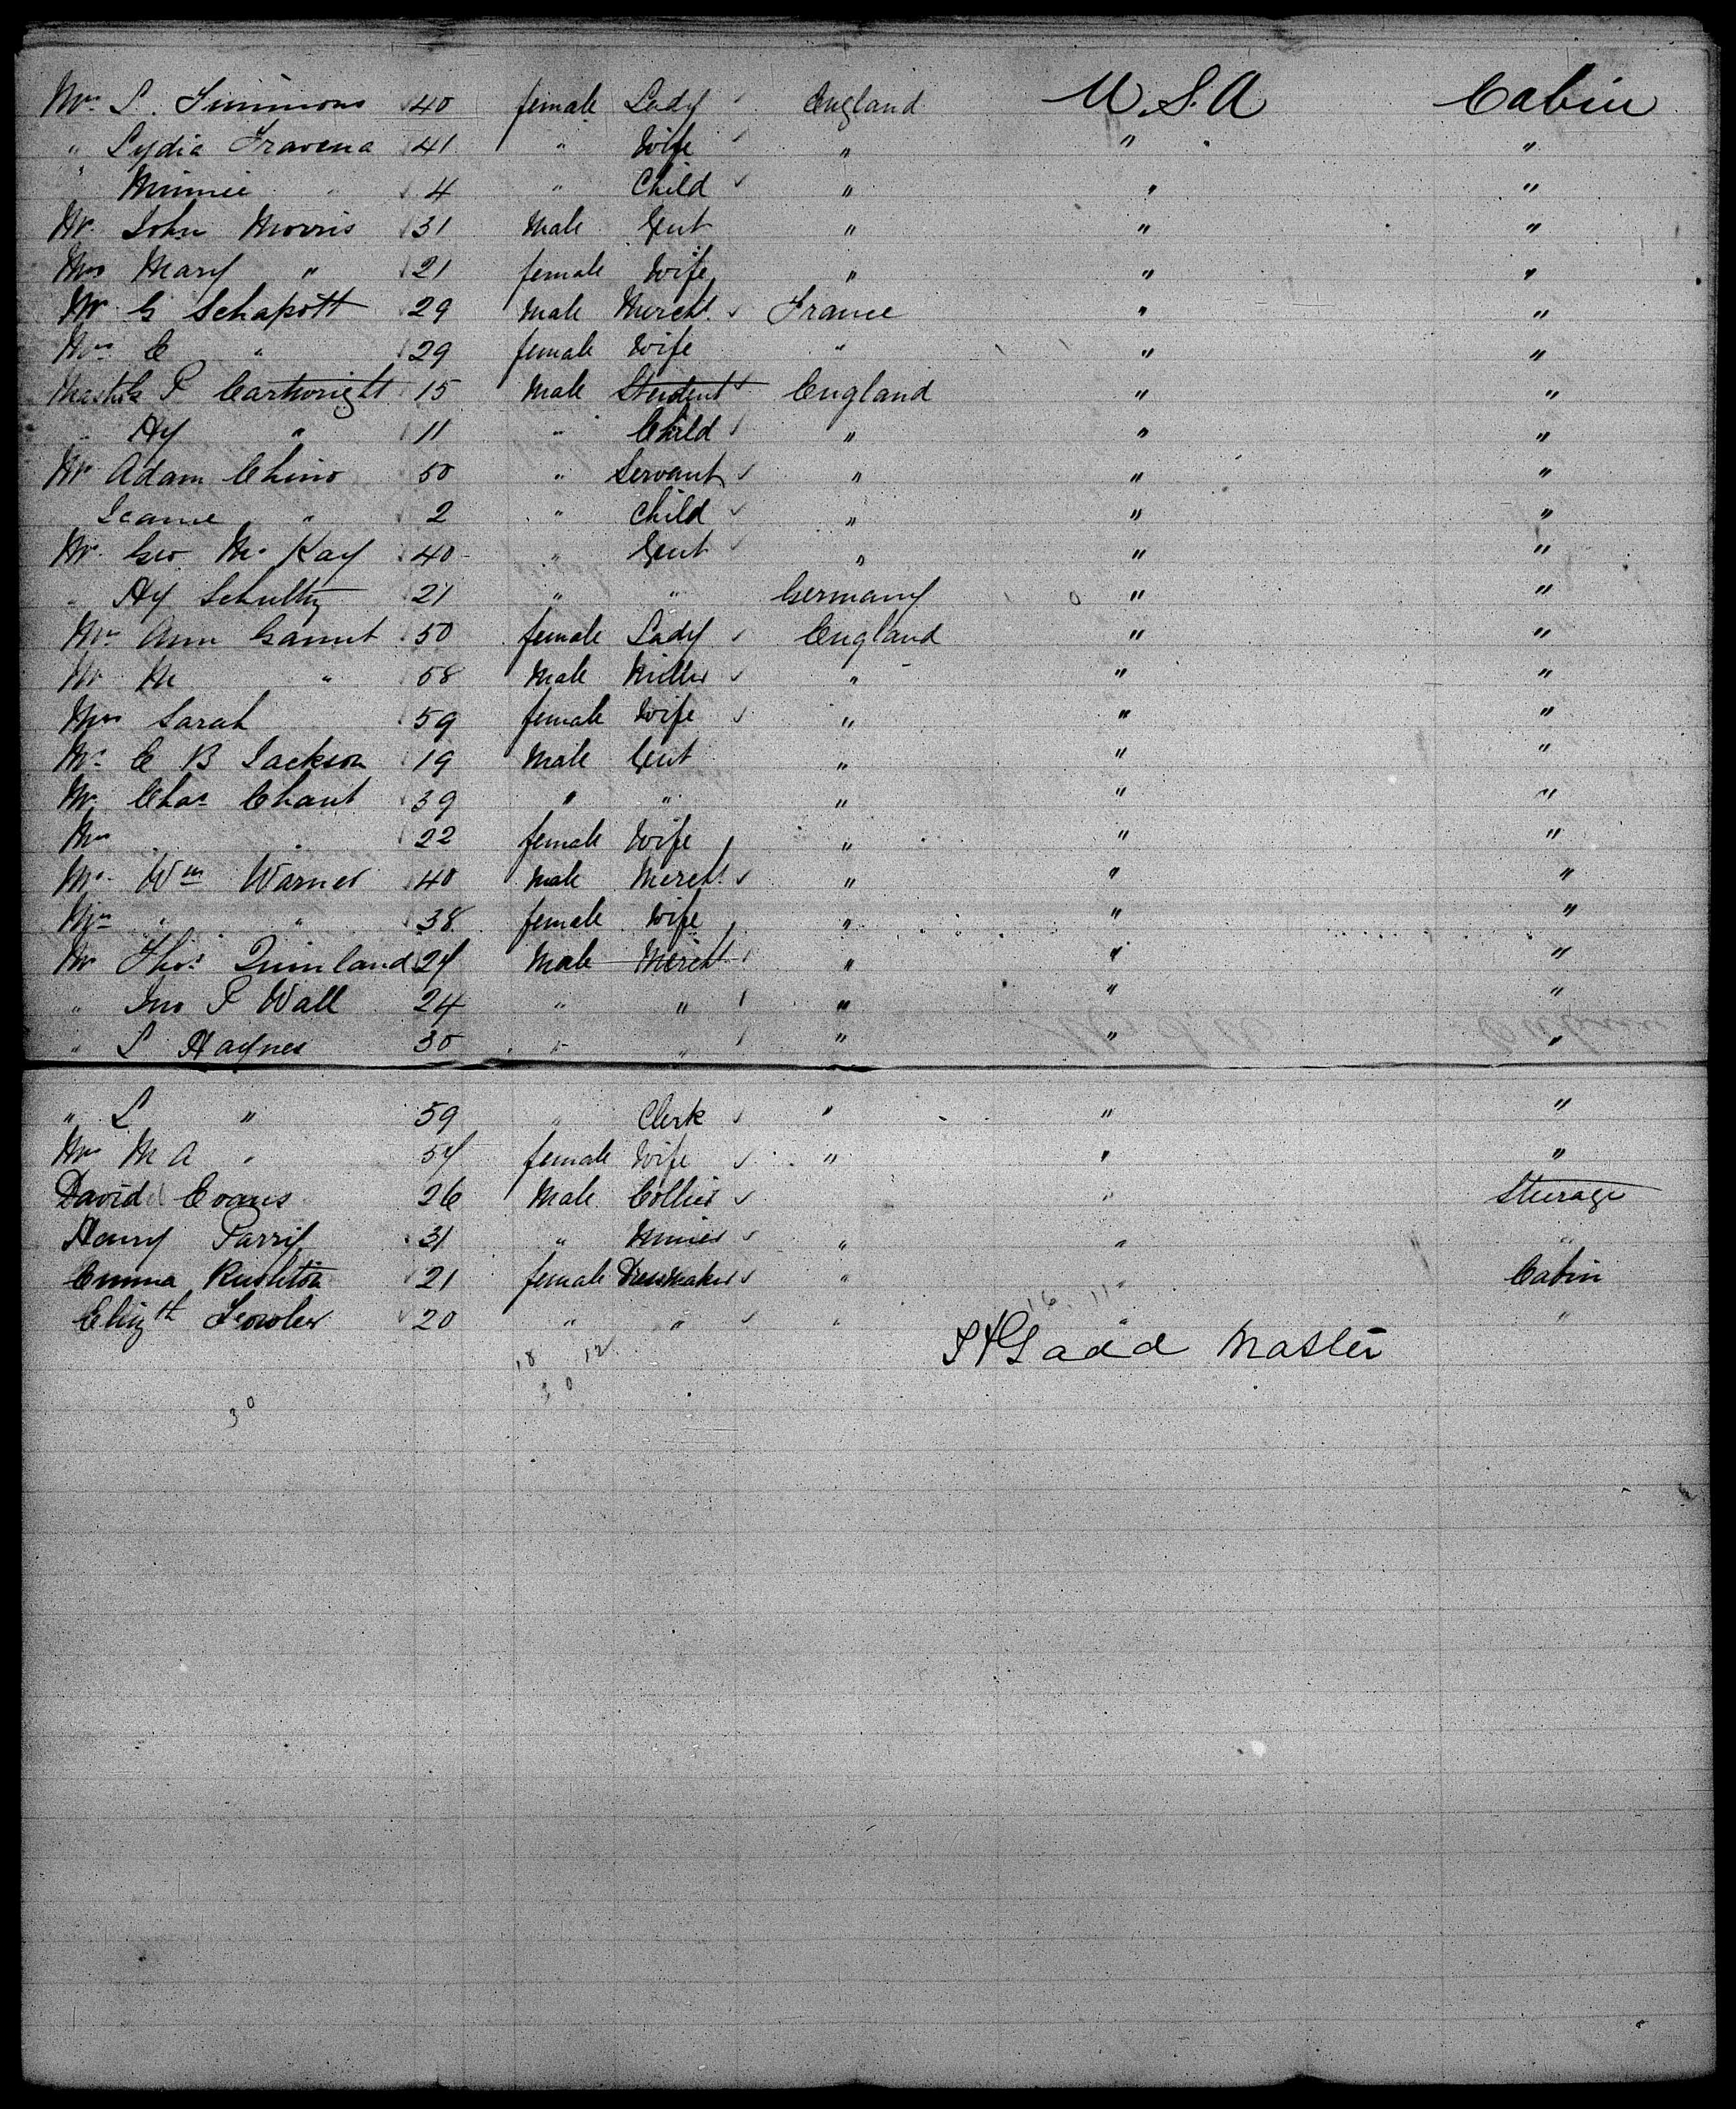 Mrs L. Simmons 40 female Lady England U.S.A Cabin
" Lydia Travena 41 " Wife " " "
" Minnie " 4 " Child " " "
Mr John Morris 31 Male Gent " " "
Mrs Mary " 21 female Wife " " "
Mr G Schapott 29 Male Mercht. France " "
Mrs C " 29 female Wife " " "
P Cartwright 15 Male Student England " "
" Hy " 11 " Child " " "
Mr Adam Chino 50 " Servant " " "
Jeanie " 2 " Child " " "
Mr. Geo. Mc Kay 40 " Gent " " "
" Hy Schultz 21 " " Germany " "
Mrs Ann Gamut 50 female Lady England " "
Mr M " 58 Male Miller " " "
Mrs Sarah 59 female Wife " " "
Mr C B Jackson 19 Male Gent " " "
Mr Chas Chant 39 " " " " "
Mrs " " 22 female Wife " " "
Mr Wm Warner 40 Male Mercht. " " "
Mrs " " 38 female Wife " " "
Mr Thos Quinland 24 Male Mercht " " "
" Jno P Wall 24 " " " " "
" L Haynes 30 " " " " "
" L " 59 " Clerk " " "
Mrs M A " 54 female Wife " " "
David Evans 26 Male Collier " Steerage
Henry Parry 31 " Miner " " "
Emma Rushton 21 female Dressmaker " " Cabin
Elizth Fowler 20 " " " " "
16 11
S H Gadd Master
18 12
30
30